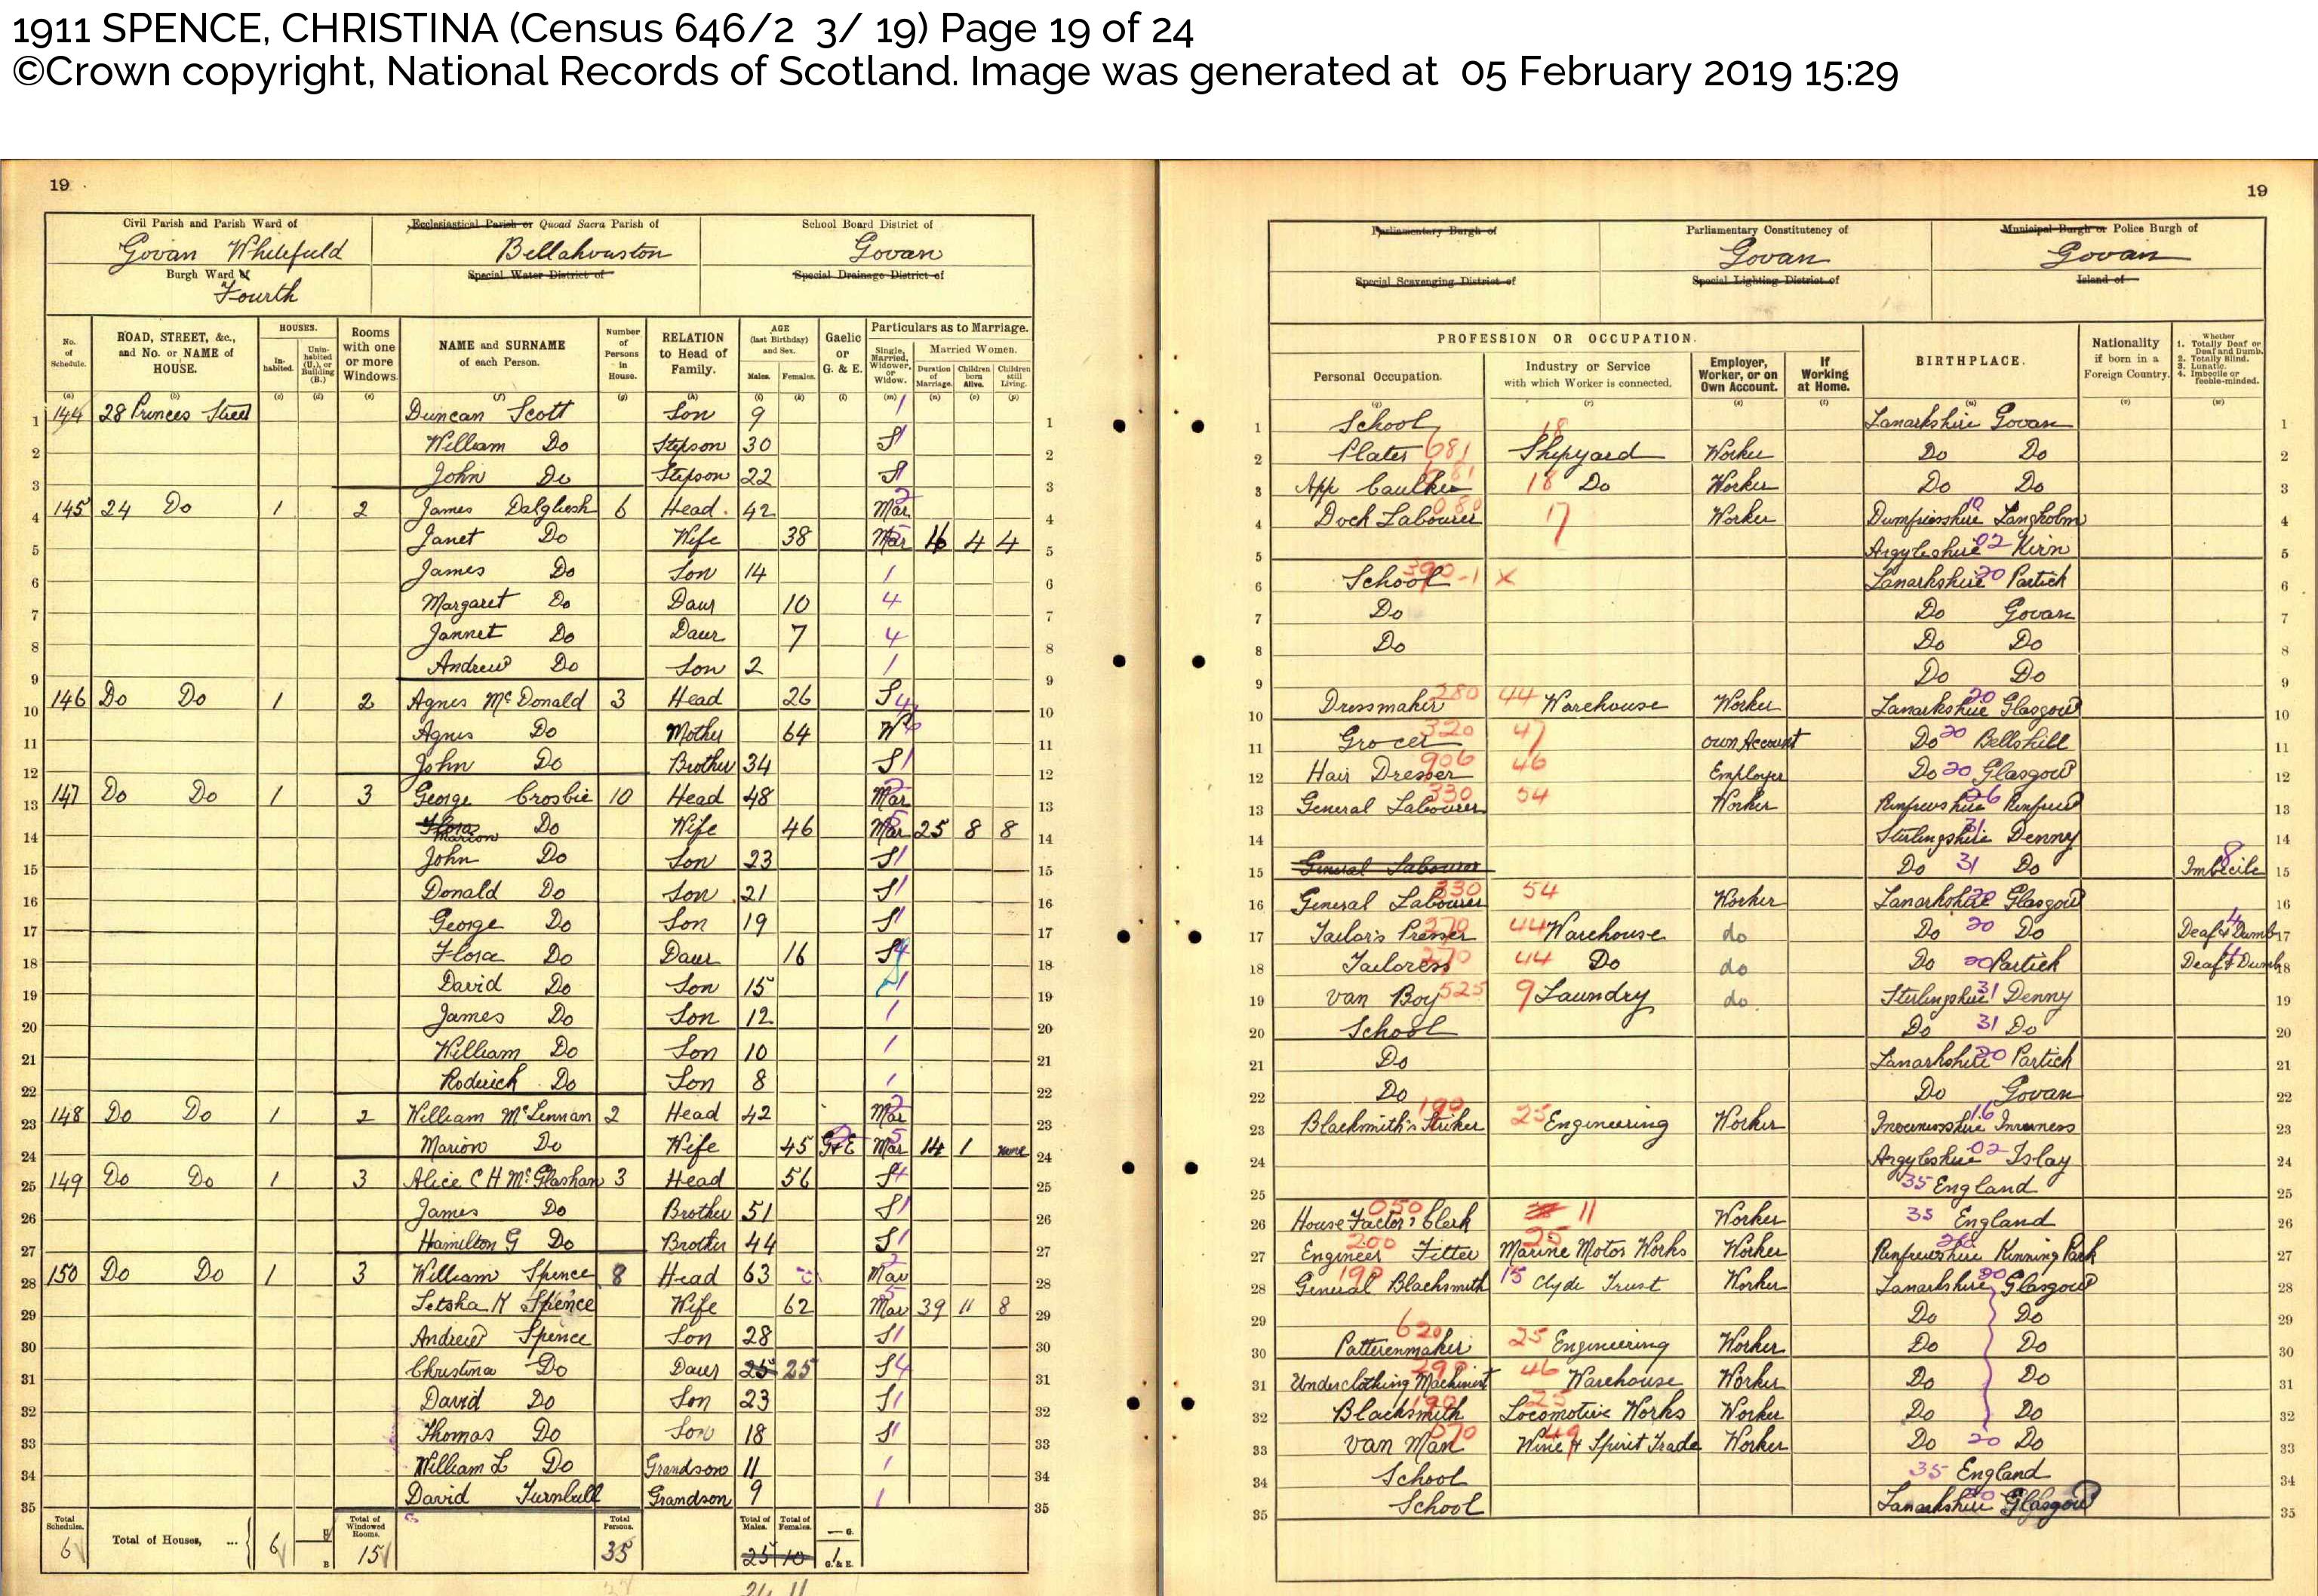 1911 SPENCE, CHRISTINA (Census 646/2 3/ 19) Page 19 of 24
©Crown copyright, National Records of Scotland. Image was generated at 05 February 2019 15:29
19
Civil Parish and Parish Ward of
Govan Whitefield
Burgh Ward of
Fourth
Ecclesiastical Parish or Quoad Sacra Parish of
Bellahouston
Special Water District of
School Board District of
Govan
Special Drainage District of
No. of Schedule.
ROAD, STREET, &c., and No. or NAME of HOUSE.
HOUSES.
In-habited.
Unin-habited (U.), or Building (B.)
Rooms with one or more Windows.
NAME and SURNAME of each Person.
Number of Persons in House.
RELATION to Head of Family.
AGE (last Birthday) and Sex.
Males. Females.
Gaelic or G. & E.
Particulars as to Marriage.
Single, Married, Widower, or Widow.
Married Women.
Duration of Marriage.
Children born Alive.
Children still Living.
(a) (b) (c) (d) (e) (f) (g) (h) (i) (k) (l) (m) (n) (o) (p)
1 144 28 Princes Street Duncan Scott Son 9 1
2 William Do Stepson 30 S 2
3 John Do Stepson 22 S 3
4 145 24 Do 1 2 James Dalgliesh 6 Head 42 Mar 4
5 Janet Do Wife 38 Mar 16 4 4 5
6 James Do Son 14 6
7 Margaret Do Daur 10 7
8 Jannet Do Daur 7 8
9 Andrew Do Son 2 9
10 146 Do Do 1 2 Agnes McDonald 3 Head 26 S 10
11 Agnes Do Mother 64 W 11
12 John Do Brother 34 S 12
13 147 Do Do 1 3 George Crosbie 10 Head 48 Mar 13
14 Flora Marion Do Wife 46 Mar 25 8 8 14
15 John Do Son 23 S 15
16 Donald Do Son 21 S 16
17 George Do Son 19 S 17
18 Flora Do Daur 16 S 18
19 David Do Son 15 19
20 James Do Son 12 20
21 William Do Son 10 21
22 Roderick Do Son 8 22
23 148 Do Do 1 2 William McLennan 2 Head 42 Mar 23
24 Marion Do Wife 45 G&E Mar 14 1 none 24
25 149 Do Do 1 3 Alice C H McGlashan 3 Head 56 S 25
26 James Do Brother 51 S 26
27 Hamilton G Do Brother 44 S 27
28 150 Do Do 1 3 William Spence 8 Head 63 Mar 28
29 Letsha K Spence Wife 62 Mar 39 11 8 29
30 Andrew Spence Son 28 S 30
31 Christina Do Daur 25 25 S 31
32 David Do Son 23 S 32
33 Thomas Do Son 18 S 33
34 William L Do Grandson 11 34
35 David Turnbull Grandson 9 35
Total Schedules. 6
Total of Houses, ... 6
U
B
Total of Windowed Rooms. 15
Total Persons. 35
Total of Males. 25
Total of Females. 10
— G.
1 G. & E.
24 11
19
Parliamentary Burgh of
Special Scavenging District of
Parliamentary Constituency of
Govan
Special Lighting District of
Municipal Burgh or Police Burgh of
Govan
Island of
PROFESSION OR OCCUPATION.
Personal Occupation.
Industry or Service with which Worker is connected.
Employer, Worker, or on Own Account.
If Working at Home.
BIRTHPLACE.
Nationality if born in a Foreign Country.
Whether
1. Totally Deaf or Deaf and Dumb.
2. Totally Blind.
3. Lunatic.
4. Imbecile or feeble-minded.
(q) (r) (s) (t) (u) (v) (w)
1 School Lanarkshire Govan 1
2 Plater 681 18 Shipyard Worker Do Do 2
3 App Caulker 681 18 Do Worker Do Do 3
4 Dock Labourer 080 17 Worker Dumfriesshire 10 Langholm 4
5 Argyleshire 02 Kirn 5
6 School 390-1 x Lanarkshire 20 Partick 6
7 Do Do Govan 7
8 Do Do Do 8
9 Do Do 9
10 Dressmaker 280 44 Warehouse Worker Lanarkshire 20 Glasgow 10
11 Grocer 320 47 own Account Do 20 Bellshill 11
12 Hair Dresser 906 46 Employer Do 20 Glasgow 12
13 General Labourer 330 54 Worker Renfrewshire 26 Renfrew 13
14 Stirlingshire 31 Denny 14
15 General Labourer Do 31 Do Imbecile 15
16 General Labourer 330 54 Worker Lanarkshire 20 Glasgow 16
17 Tailor's Presser 270 44 Warehouse do Do 20 Do Deaf & Dumb 17
18 Tailoress 270 44 Do do Do 20 Partick Deaf & Dumb 18
19 Van Boy 525 9 Laundry do Stirlingshire 31 Denny 19
20 School Do 31 Do 20
21 Do Lanarkshire 20 Partick 21
22 Do Do Govan 22
23 Blacksmith's Striker 190 25 Engineering Worker Invernessshire 16 Inverness 23
24 Argyleshire 02 Islay 24
25 35 England 25
26 House Factor's Clerk 050 11 Worker 35 England 26
27 Engineer Fitter 200 25 Marine Motor Works Worker Renfrewshire 26 Kinning Park 27
28 General Blacksmith 190 15 Clyde Trust Worker Lanarkshire 20 Glasgow 28
29 Do Do 29
30 Patternmaker 620 25 Engineering Worker Do Do 30
31 Underclothing Machinist 290 46 Warehouse Worker Do Do 31
32 Blacksmith 190 25 Locomotive Works Worker Do Do 32
33 Van Man 070 49 Wine & Spirit Trade Worker Do 20 Do 33
34 School 35 England 34
35 School Lanarkshire 20 Glasgow 35